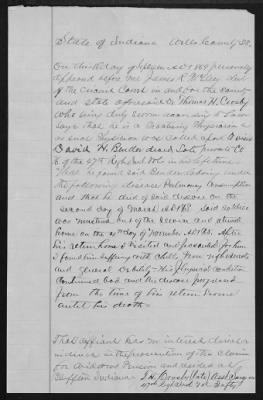 State of Indiana Wells County SS.
On this day of September AD 1889 personally
appeared before me James R. clerk
of the Circuit Court in and for the County
and state aforesaid Dr. Thomas H. Crosby
who being duly sworn according to law
says that he is a Practicing Physician &
as such Physician was called upon to visit
David H. deceased late private Co
of the 47th Regt Ind Vols in his lifetime
That he found said laboring under
the following disease Pulmonary Consumption
and that he died of said disease on the
second day of March AD 1865 Said soldier
was and arrived
home on the day of November AD 186 After
his return home I visited and prescribed for him
I found him suffering with chills
and general debility his physical condition
continued bad and the disease progressed
from the time of his return home
until his death
That affiant has no interest direct or
indirect in the prosecution of the claim
for Pension and resides at
Bluffton Indiana
T H Crosby (late) Asst Surgeon
47th Regt Ind Vol Infty